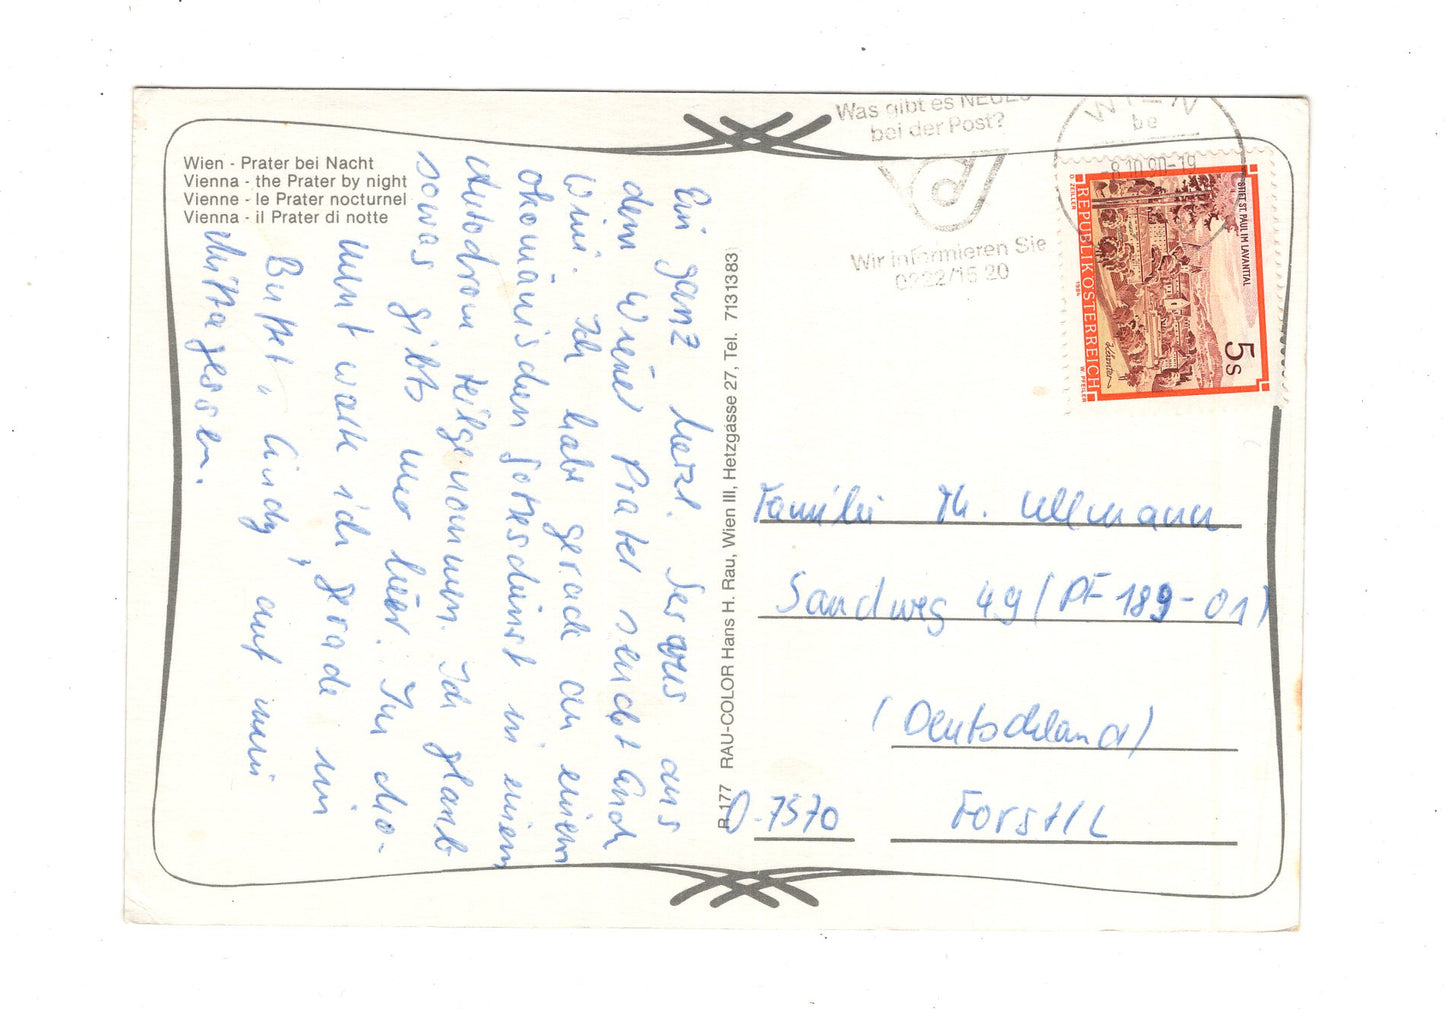 Wien - Prater bei Nacht
Vienna - the Prater by night
Vienne - le Prater nocturnel
Vienna - il Prater di notte
Ein ganz herzl. Servus aus
dem Wiener Prater sendet Euch
Wini. Ich habe gerade an einem
ökomänischen Gottesdienst in einem
Autodrom teilgenommen. Ich glaub
sowas gibts nur hier. Im
warte ich gerade mi
Buffet " Cindy", auf mein
Mittagessen.
R 177 RAU-COLOR Hans H. Rau, Wien III, Hetzgasse 27, Tel. 7131383
Was gibt es NEUES
bei der Post?
Wir informieren Sie
0222/15 20
WIEN
be
8.10.90-19
STIFT ST. PAUL IM LAVANTTAL
5 S
REPUBLIK ÖSTERREICH
Kärnten
O. ZEILLER
1984
W. PFEILER
Familie Th. Ullmann
Sandweg 49 (PF 189-01)
(Deutschland)
O-7570 Forst/L